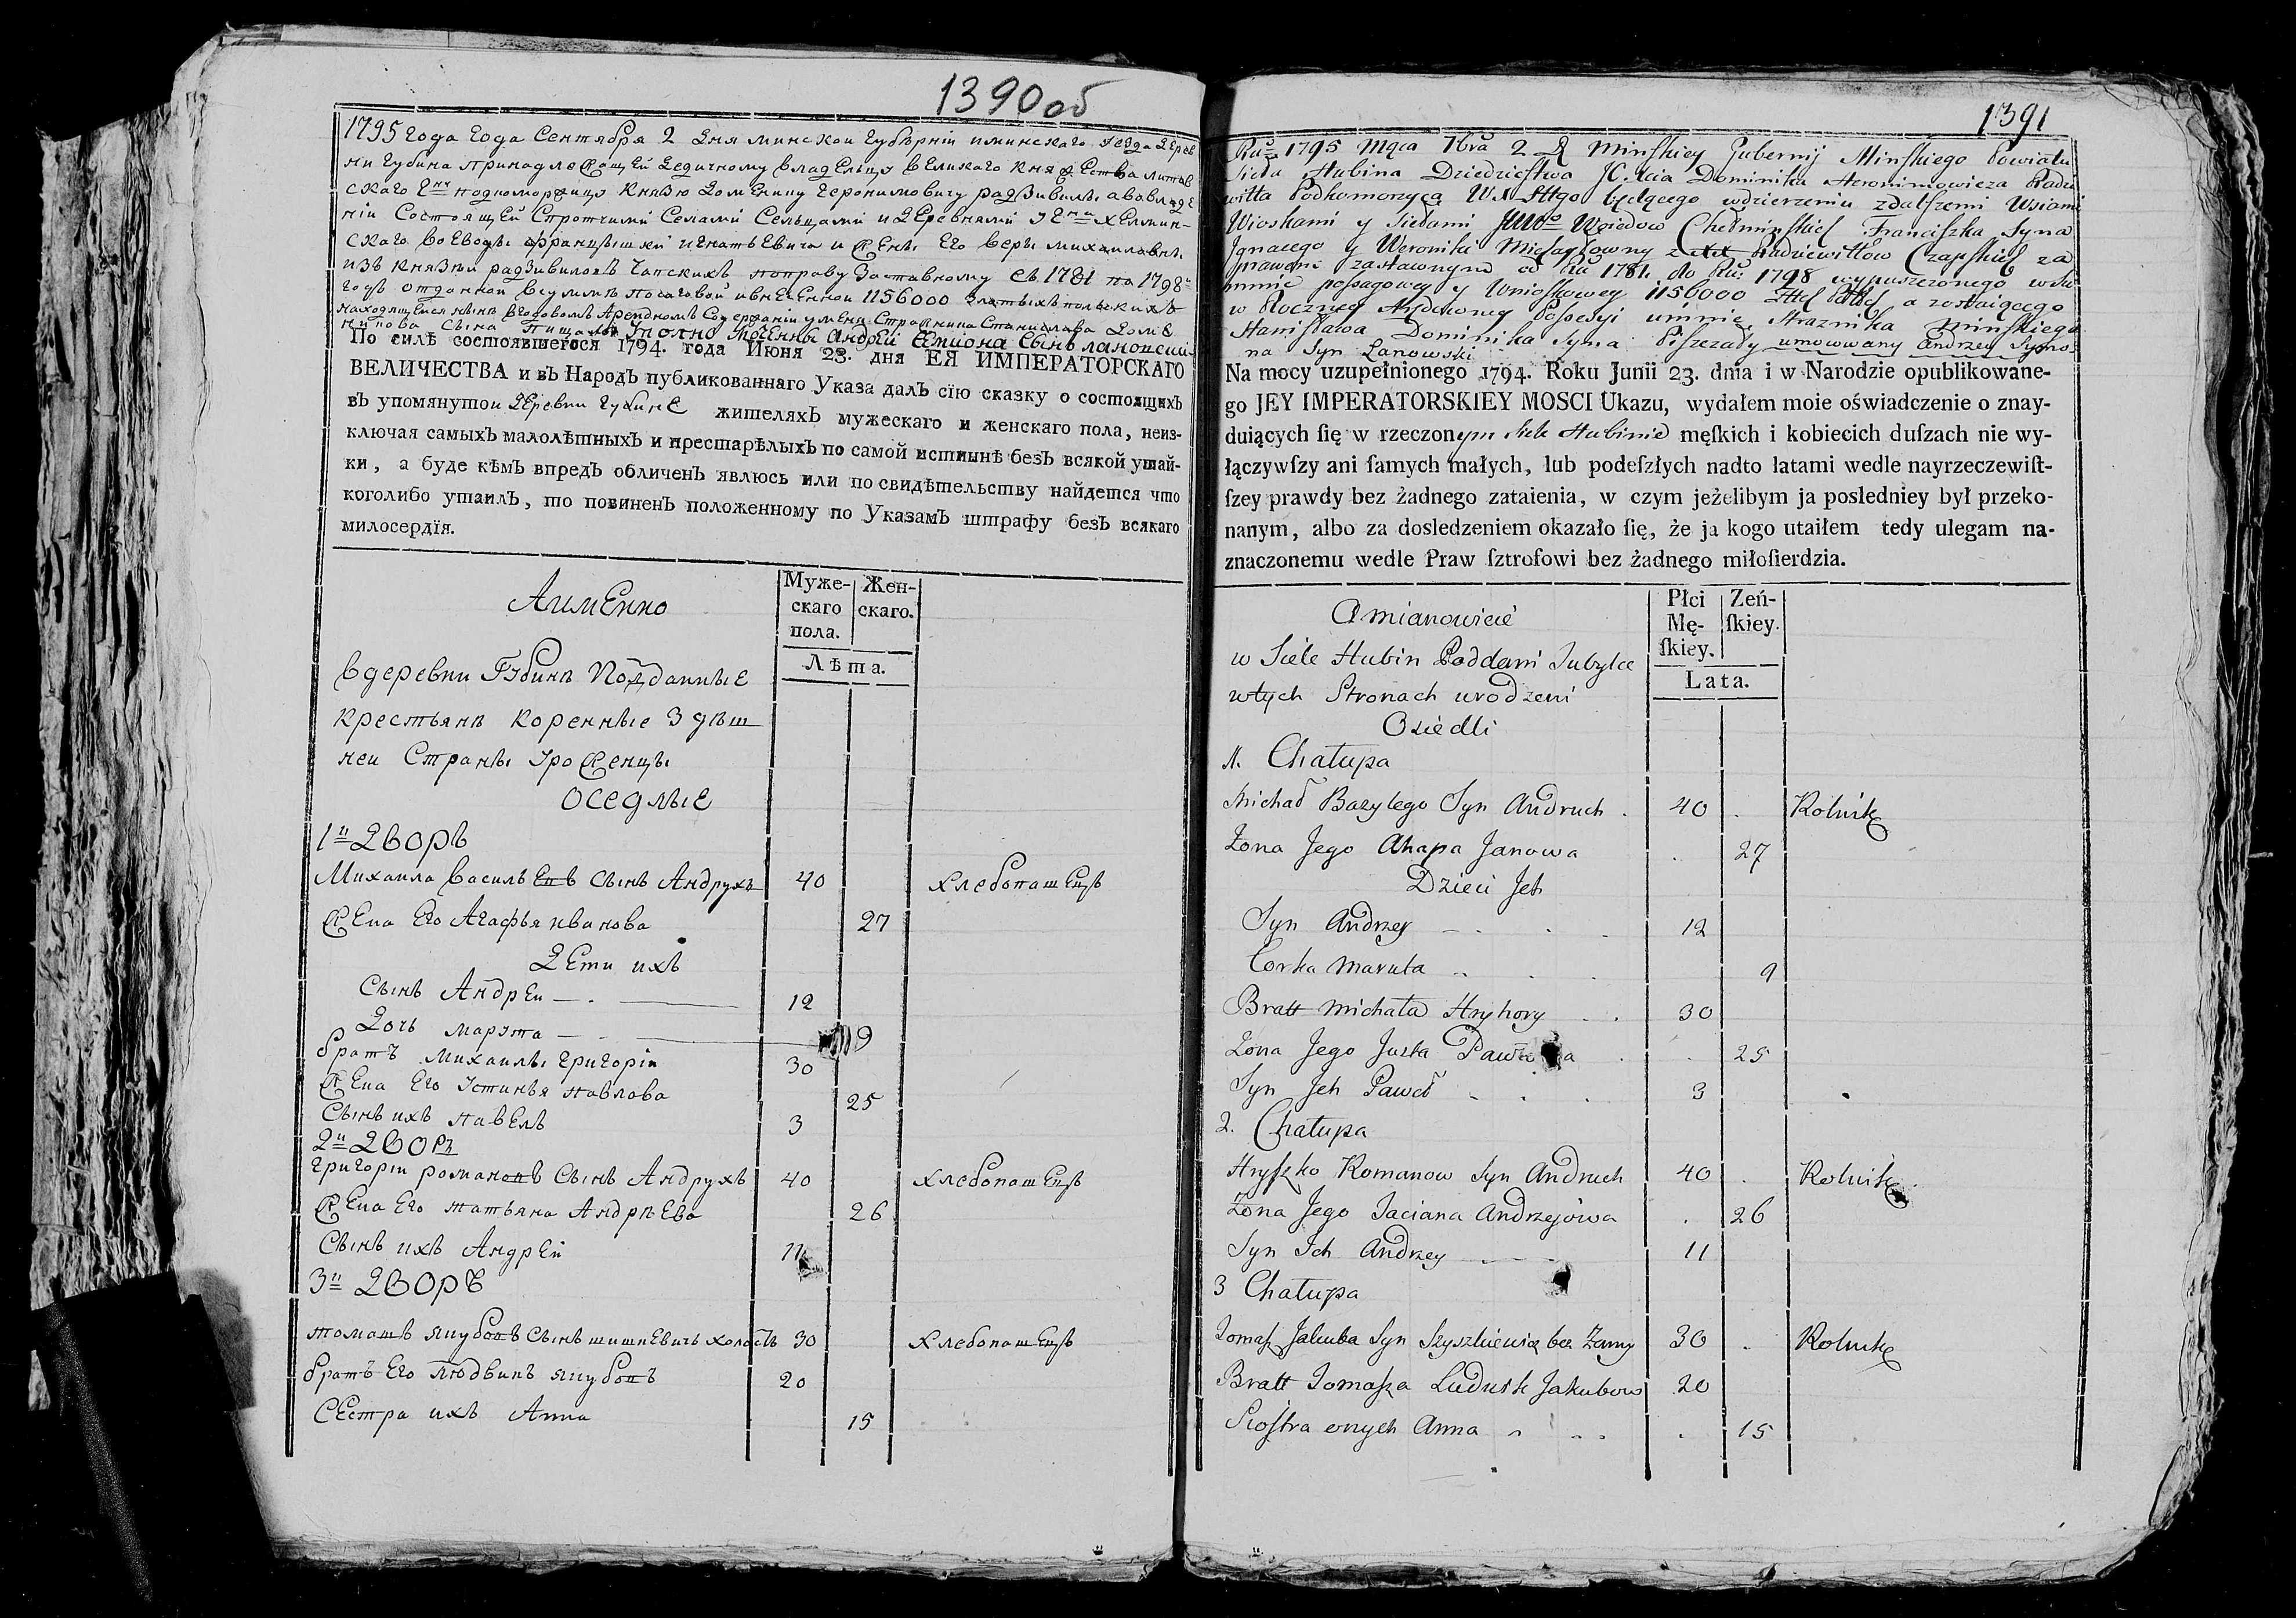 1390об
1795 года года Сентября 2 дня минской губѣрніи иминскаго уезда дерев
ни губина принадлежащей дедичному владельцу великаго княжества литов
скаго подкоморжицу князю доменику геронимовичу радзивилу авовладе
ніи состоящей спротчими селами сельцами идеревнями у хелмин-
скаго воеводы францышки игнатьевича и жены его веры михаиловны
изъ князей радзивиловъ чапскихъ поправу заставному съ 1781 по 1798
годъ отданной всумме посаговой ивнесенной 1156000 златыхъ польскихъ
находящейся ныне вгодовомъ арендномъ содержаніи умене стражника станислава доме
никова сына уполномоченны андрей сына лановский
По силѣ состоявшегося 1794. года Июня 23. дня ЕЯ ИМПЕРАТОРСКАГО
ВЕЛИЧЕСТВА и въ Народъ публикованнаго Указа далъ сїю сказку о состоящихъ
въ упомянутои деревни губине жителяхъ мужескаго и женскаго пола, неиз-
ключая самыхъ малолѣтныхъ и престарѣлыхъ по самой истиннѣ безъ всякой утай-
ки, а буде кѣмъ впредъ обличенъ явлюсь или по свидѣтельству найдется что
коголибо утаилъ, то повиненъ положенному по Указамъ штрафу безъ всякаго
милосердїя.
Аименно
Муже-
скаго
пола.
Жен-
скаго.
Лѣта.
вдеревни Губинѣ Подданные
крестьянѣ коренные здѣш
неи страны уроженцы
оседлые
1й дворъ
Михаила василъевъ сынъ Андрухъ 40 хлебопашецъ
жена его Агафья иванова 27
дети ихъ
сынъ Андрей 12
дочь марута 9
братъ михаилы григорій 30
жена его устинья павлова 25
сынъ ихъ павелъ 3
2й дворъ
григорій романовъ сынъ Андрухъ 40 хлебопашецъ
жена его татьяна Андрѣева 26
сынъ ихъ Андрей 11
3й дворъ
томашъ якубовъ сынъ шишкевичъ холостъ 30 хлебопашецъ
братъ его людвикъ якубовъ 20
сестра ихъ Анна 15
1391
Ru 1795 Mqca 7bra 2 d Minskiey Gubernij Minskiego Powiatu
Sieła Hubina Dziedzictwa JO. Xcia Dominika Heronimowicza Radzi
wiłła Podkomorzyca W. X. Littgo będącego wdzierzeniu zdalszemi Wsiami
Wioskami y Siełami Woiedow Chełminskich Franciszka Syna
Jgnacego y Weroniki Michayłowny z Radziwiłłow Czapskich za
prawem zastawnym od Ru 1781. do Ru: 1798 wypuszczonego w su
mmie posagowey y Wnioskowey 1156000 a zostaiącego
w Roczney Arędowney Possesyi umnie Straznika Minskiego
Stanisława Dominika Syna umowwany Andrzey Symo
na Syn Łanowski
Na mocy uzupełnionego 1794. Roku Junii 23. dnia i w Narodzie opublikowane-
go JEY IMPERATORSKIEY MOSCI Ukazu, wydałem moie oświadczenie o znay-
duiących ſię w rzeczonym siele Hubinie męſkich i kobiecich duſzach nie wy-
łączywſzy ani ſamych małych, lub podeſzłych nadto latami wedle nayrzeczewiſt-
ſzey prawdy bez żadnego zataienia, w czym jeżelibym ja posledniey był przeko-
nanym, albo za dosledzeniem okazało ſię, że ja kogo utaiłem tedy ulegam na-
znaczonemu wedle Praw ſztrofowi bez żadnego miłoſierdzia.
Amianowicie
Płci
Mę-
ſkiey.
Zeń-
ſkiey.
Lata.
w Siele Hubin Poddani Jubylce
wtych Stronach urodzeni
Osiedli
1. Chałupa
Michał Bazylego Syn Andruch 40 Rolnik
Żona Jego Ahapa Janowa 27
Dzieci Jch
Syn Andrzey 12
Corka Maruta 9
Bratt Michała Hryhory 30
Żona Jego Justa Pawłowa 25
Syn Jch Paweł 3
2. Chałupa
Hryszko Romanow Syn Andruch 40 Rolnik
Żona Jego Taciana Andrzejowa 26
Syn Ich Andrzey 11
3 Chałupa
Tomasz Jakuba Syn Szyszkiewicz bez Żony 30 Rolnik
Bratt Tomasza Ludwik Jakubow 20
Siostra onych Anna 15